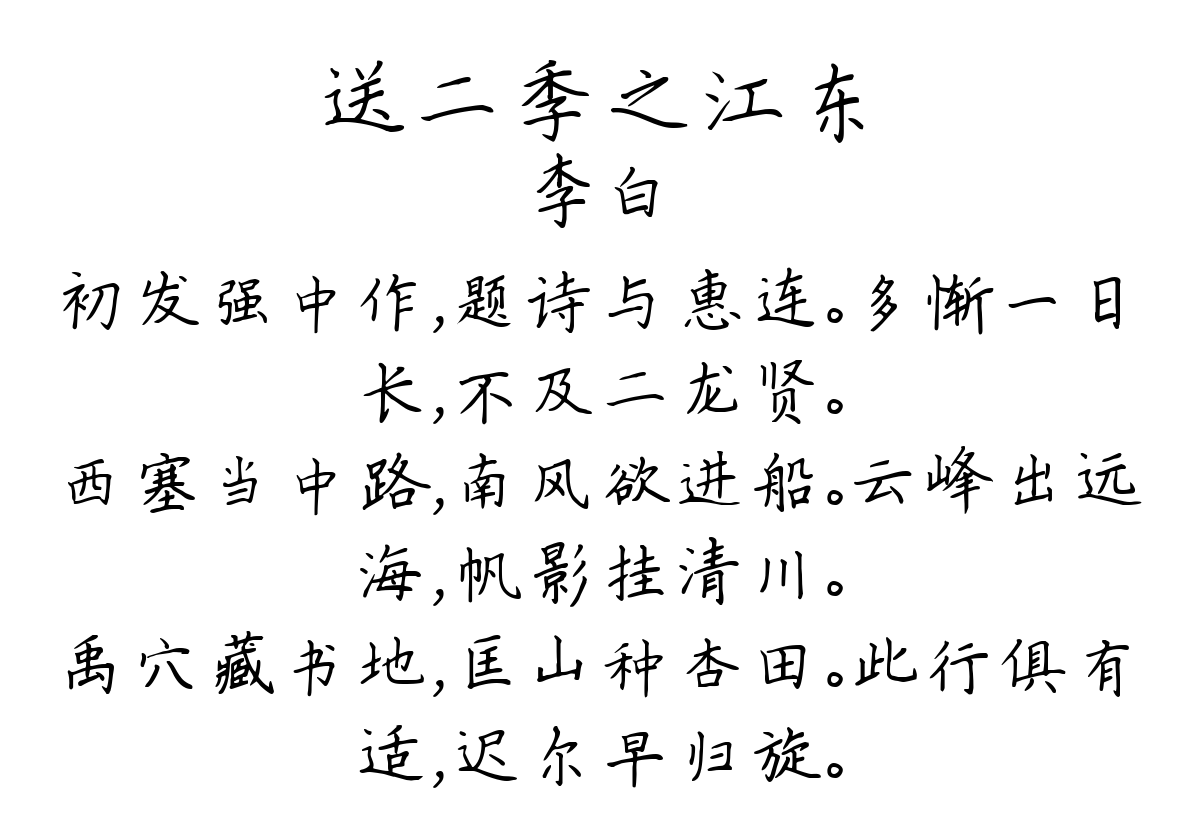 送二季之江东
李白
初发强中作,题诗与惠连。多惭一日
长,不及二龙贤。
西塞当中路,南风欲进船。云峰出远
海,帆影挂清川。
禹穴藏书地,匡山种杏田。此行俱有
适,迟尔早归旋。